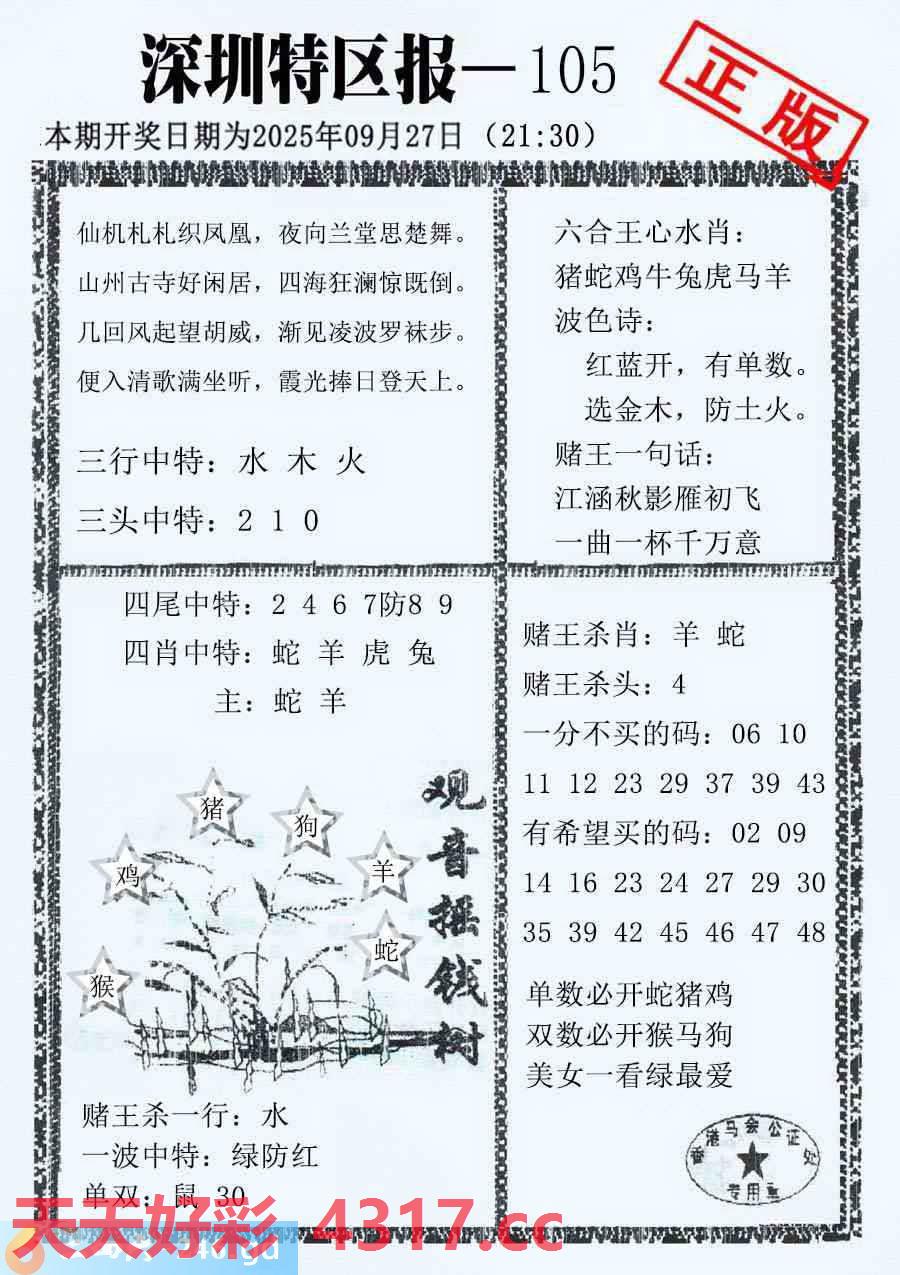 深圳特区报—105
正版
本期开奖日期为2025年09月27日（21:30）
仙机札札织凤凰，夜向兰堂思楚舞。
山州古寺好闲居，四海狂澜惊既倒。
几回风起望胡威，渐见凌波罗袜步。
便入清歌满坐听，霞光捧日登天上。
三行中特：水 木 火
三头中特：2 1 0
六合王心水肖：
猪蛇鸡牛兔虎马羊
波色诗：
红蓝开，有单数。
选金木，防土火。
赌王一句话：
江涵秋影雁初飞
一曲一杯千万意
四尾中特：2 4 6 7防8 9
四肖中特：蛇 羊 虎 兔
主：蛇 羊
猪
狗
鸡
羊
蛇
猴
观音摇钱树
赌王杀一行：水
一波中特：绿防红
单双：鼠 30
赌王杀肖：羊 蛇
赌王杀头：4
一分不买的码：06 10
11 12 23 29 37 39 43
有希望买的码：02 09
14 16 23 24 27 29 30
35 39 42 45 46 47 48
单数必开蛇猪鸡
双数必开猴马狗
美女一看绿最爱
香港马会公证处
专用章
天天好彩 4317.cc